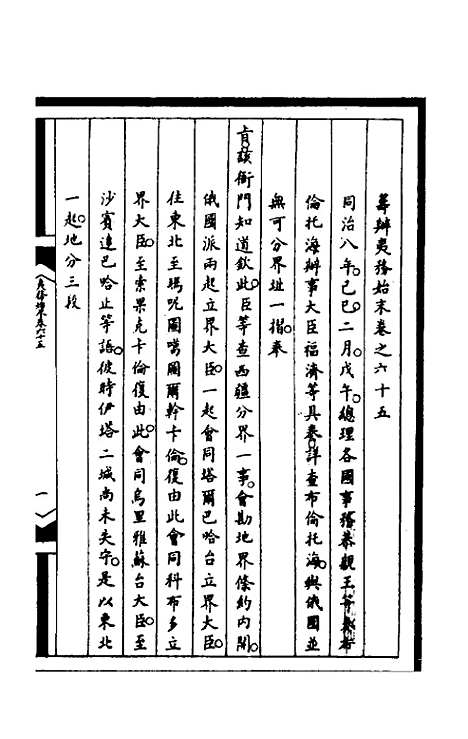 籌辦夷務始末卷之六十五
同治八年。己巳。二月。戊午。總理各國事務恭親王等奏。
倫托海辦事大臣福濟等具奏。詳查布倫托海。與俄國並
無可分界址一摺。奉
旨。該衙門知道。欽此。臣等查西疆分界一事。會勘地界條約內開。
俄國派兩起立界大臣。一起會同塔爾巴哈台立界大臣。
往東北至瑪呢圖噶圖爾幹卡倫。復由此會同科布多立
界大臣。至索果克卡倫。復由此。會同烏里雅蘇台大臣。至
沙賓達巴哈止等語。彼時伊塔二城尚未失守。是以東北
一起。地分三段
夷務始末卷六十五
一